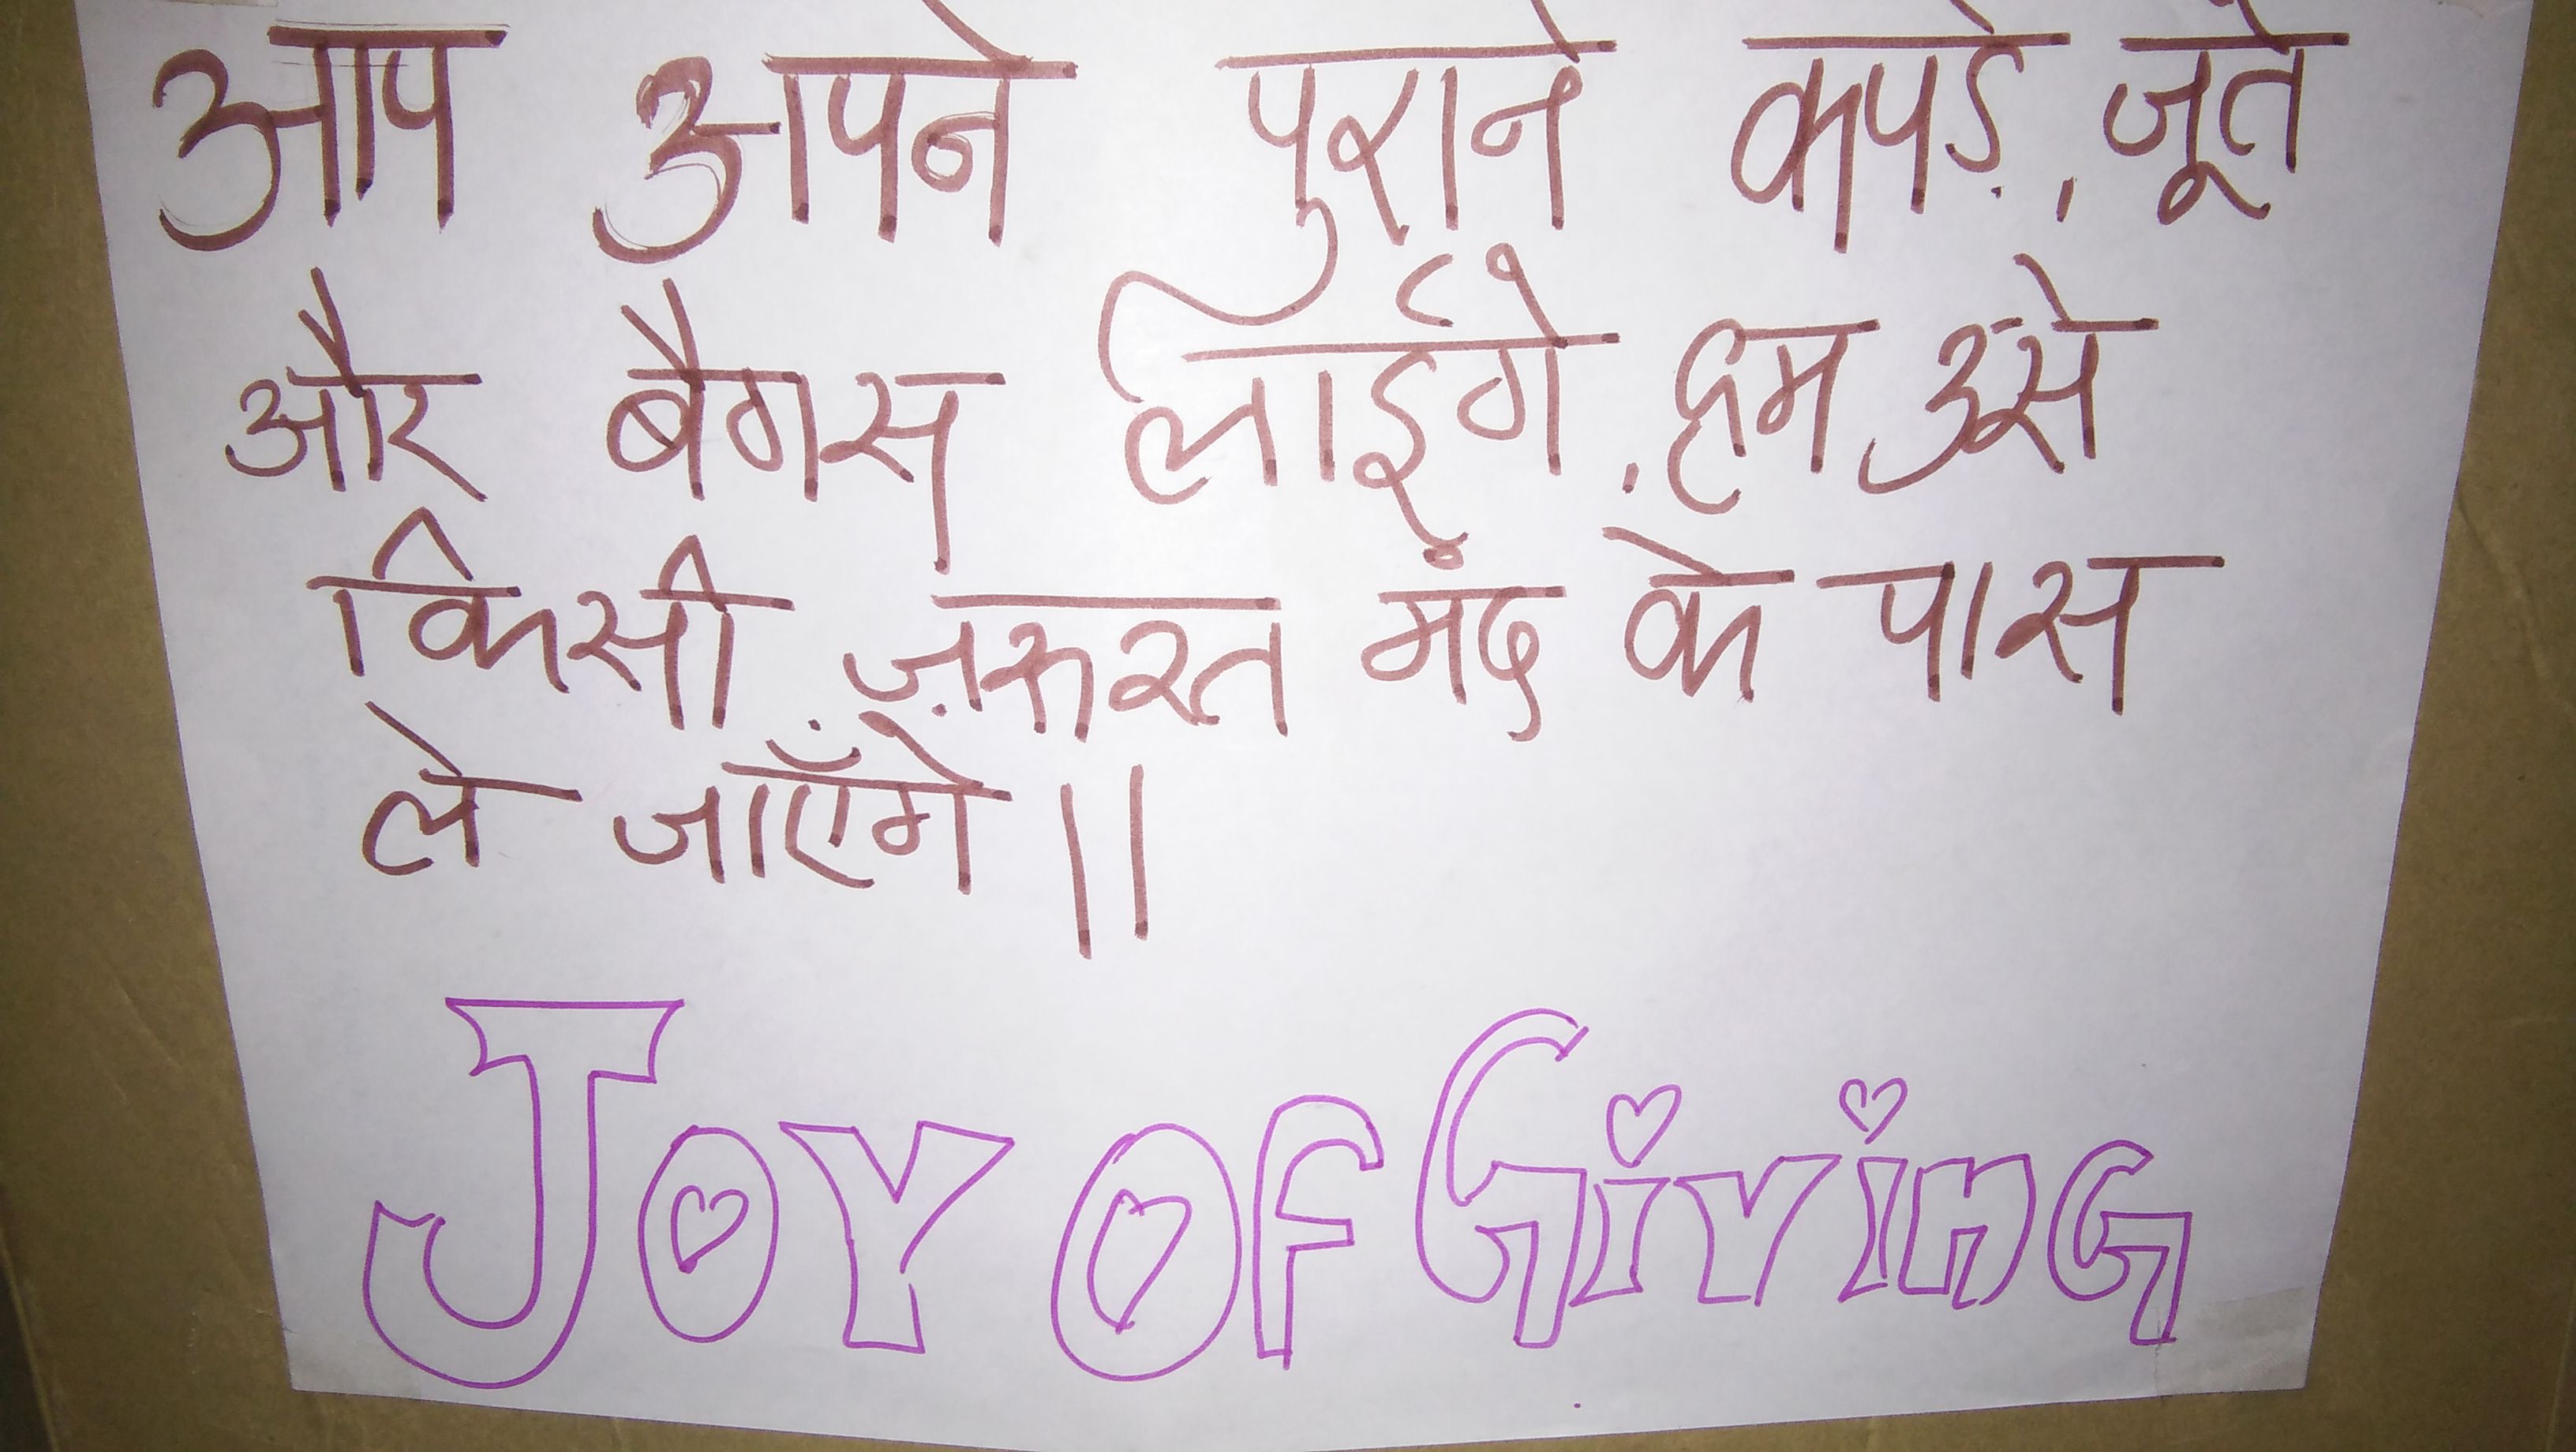 आप अपने पुराने कपड़े, जूते
और बैगस लाईगे, हम उसे
किसी ज़रुरत मंद के पास
ले जाएँगे ||
JOY OF GiViNG